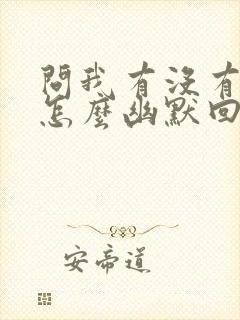 問我有沒有
怎麼幽默回
安帝道